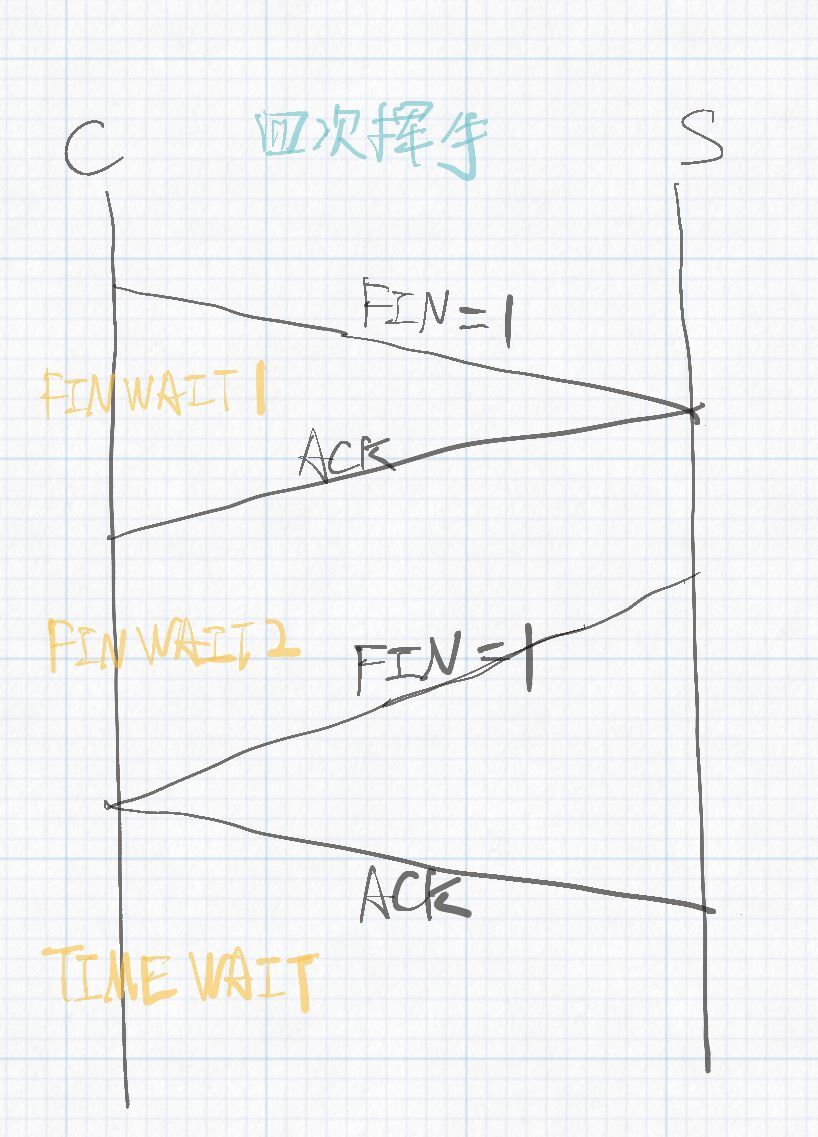 四次挥手
C
S
FIN=1
FINWAIT1
ACK
FINWAIT2
FIN=1
ACK
TIMEWAIT